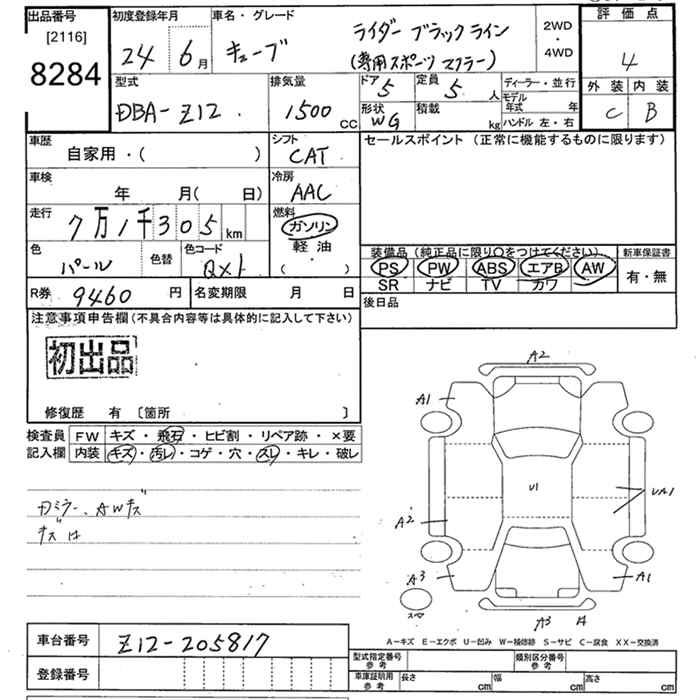 出品番号
[2116]
8284
初度登録年月
24年 6月
車名・グレード
キューブ
ライダー ブラックライン
(専用スポーツ マフラー)
2WD
・
4WD
評価点
4
外装 内装
C B
型式
DBA-Z12
排気量
1500 CC
ドア 5
定員 5 人
形状 WG
積載 kg
ディーラー・並行
モデル年式 年
ハンドル 左・右
車歴
自家用・( )
シフト
CAT
セールスポイント (正常に機能するものに限ります)
車検
年 月( 日)
冷房
AAC
走行
7万1千305km
燃料
ガソリン
軽油
( )
色
パール
色替
色コード
QX1
装備品 (純正品に限り○をつけてください)
PS PW ABS エアB AW
SR ナビ TV カワ
新車保証書
有・無
R券 9460 円
名変期限 月 日
後日品
注意事項申告欄(不具合内容等は具体的に記入して下さい)
初出品
修復歴 有 〔箇所 〕
検査員
記入欄
FW キズ・飛石・ヒビ割・リペア跡・×要
内装 キズ・汚レ・コゲ・穴・スレ・キレ・破レ
Dミラー、AWキズ
A2
A1
U1
UA1
A2
A3
A1
A3
A-キズ E-エクボ U-凹み W-補修跡 S-サビ C-腐食 XX-交換済
車台番号 Z12-205817
登録番号
型式指定番号
参考
類別区分番号
参考
車庫証明用
参考
長さ cm 幅 cm 高さ cm